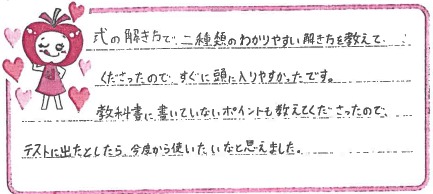 式の解き方で、二種類のわかりやすい解き方を教えて
くださったので、すぐに頭に入りやすかったです。
教科書に書いていないポイントも教えてくださったので、
テストに出たとしたら、今度から使いたいなと思えました。